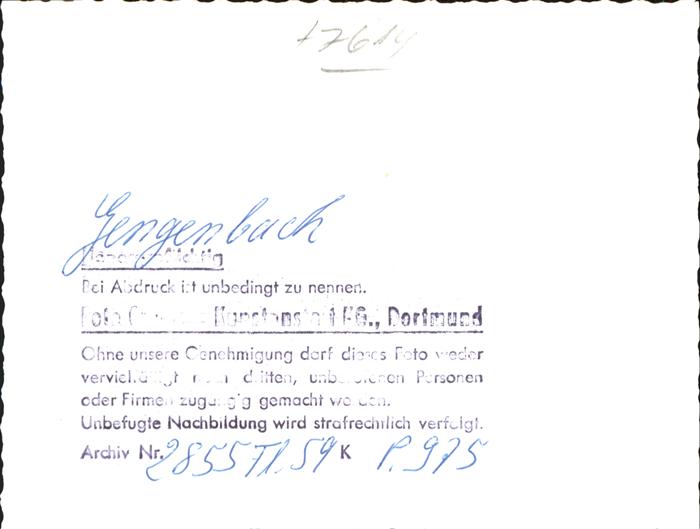 17614
Gengenbach
Bei Abdruck ist unbedingt zu nennen.
Foto KG., Dortmund
Ohne unsere Genehmigung darf dieses Foto weder
vervielfältigt noch dritten, unberufenen Personen
oder Firmen zugängig gemacht werden.
Unbefugte Nachbildung wird strafrechtlich verfolgt.
Archiv Nr. 2855 59 K P. 975